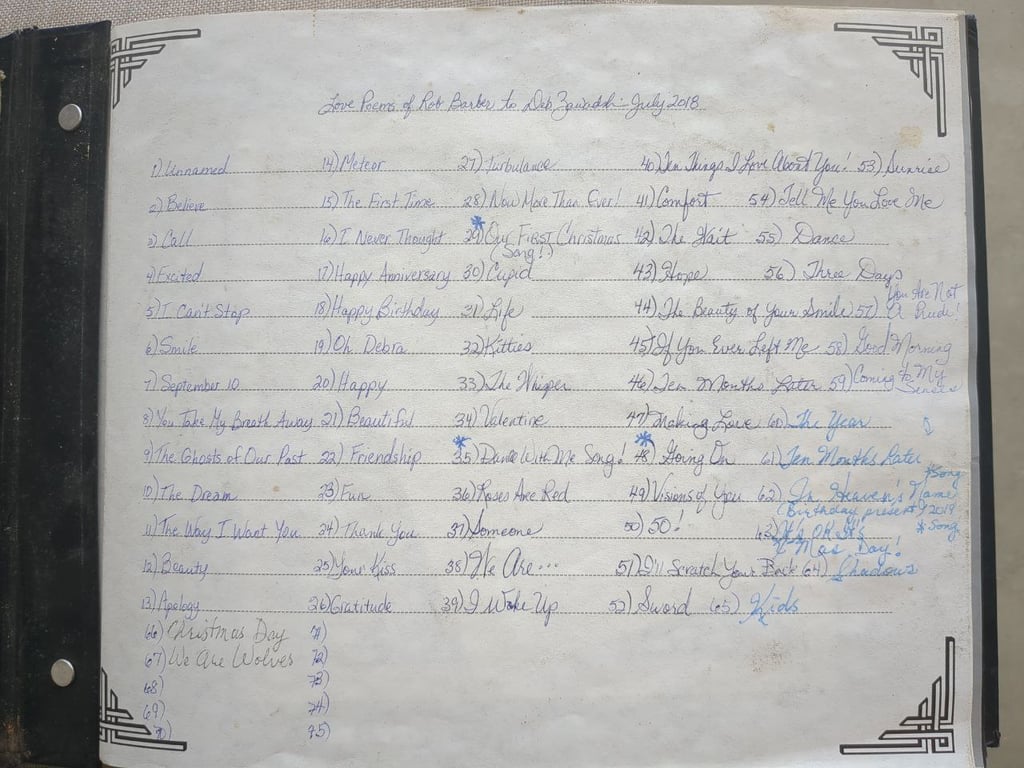 Love Poems of Rob Barber to Deb July 2018
1) Unnamed 14) Meteor 27) Turbulance 40) Ten Things I Love About You! 53) Sunrise
2) Believe 15) The First Time 28) Now More Than Ever! 41) Comfort 54) Tell Me You Love Me
3) Call 16) I Never Thought *29) Our FIRST Christmas (Song!) 42) The Wait 55) Dance
4) Excited 17) Happy Anniversary 30) Cupid 43) Hope 56) Three Days
5) I Can't Stop 18) Happy Birthday 31) Life 44) The Beauty of Your Smile 57) You Are Not A Dude!
6) Smile 19) Oh, Debra 32) Kitties 45) If You Ever Left Me 58) Good Morning
7) September 10 20) Happy 33) The Whisper 46) Ten Months Later 59) Coming to My Senses
8) You Take My Breath Away 21) Beautiful 34) Valentine 47) Making Love 60) The Year
9) The Ghosts of Our Past 22) Friendship *35) Dance With Me Song! *48) Going On 61) Ten Months Later
10) The Dream 23) Fun 36) Roses Are Red 49) Visions of You 62) In Heaven's Name *Song (Birthday present) 2019
11) The Way I Want You 24) Thank You 37) Someone 50) 50! 63) It's OK It's X-Mas Day! *Song
12) Beauty 25) Your Kiss 38) We Are... 51) I'll Scratch Your Back 64) Shadows
13) Apology 26) Gratitude 39) I Woke Up 52) Sword 65) Kids
66) Christmas Day 71)
67) We Are Wolves 72)
68) 73)
69) 74)
70) 75)